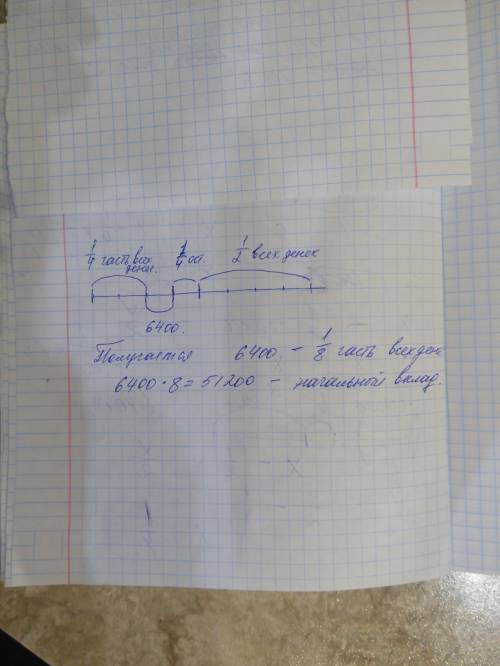 1/4 часть всех денег. 1/4 ос. 1/2 всех денег
6400.
Получается 6400 – 1/8 часть всех ден
6400 · 8 = 51200 – начальный вклад.